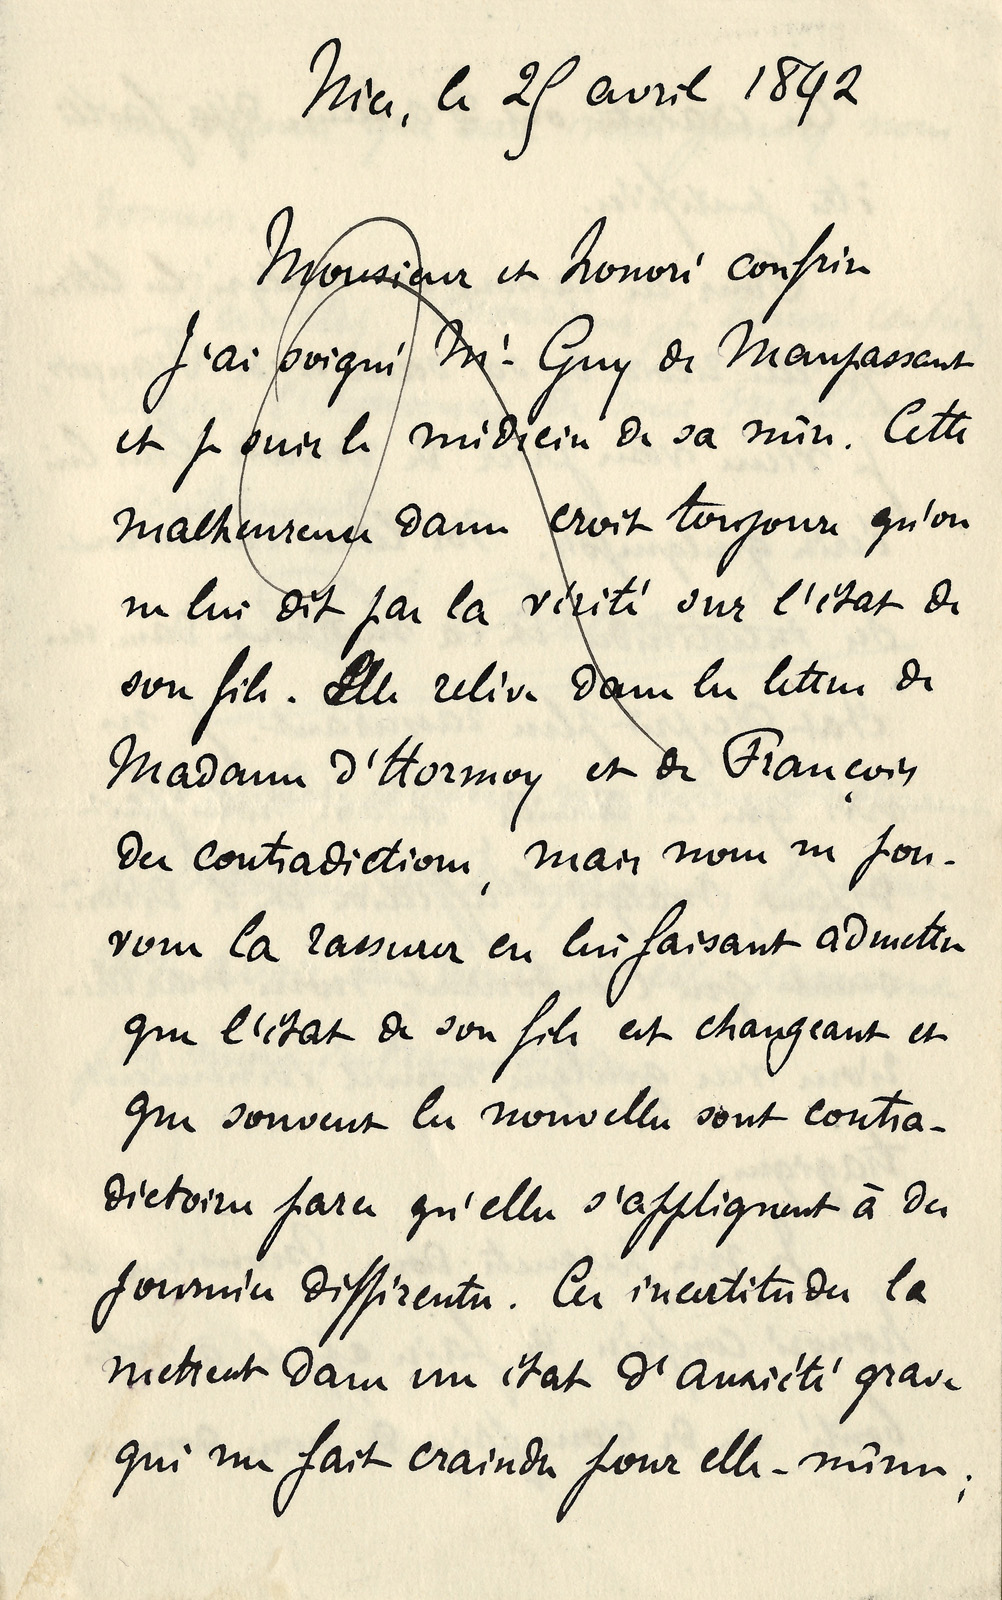 Nice, le 25 avril 1892
Monsieur et honoré confrère
J'ai soigné Mr. Guy de Maupassant
et je suis le médecin de sa mère. Cette
malheureuse dame croit toujours qu'on
ne lui dit pas la vérité sur l'état de
son fils. Elle relève dans les lettres de
Madame d'Harnois et de François
des contradictions, mais nous ne pou-
vons la rassurer en lui faisant admettre
que l'état de son fils est changeant et
que souvent les nouvelles sont contra-
dictoires parce qu'elles s'appliquent à des
journées différentes. Ces incertitudes la
mettent dans un état d'anxiété grave
qui me fait craindre pour elle-même ;